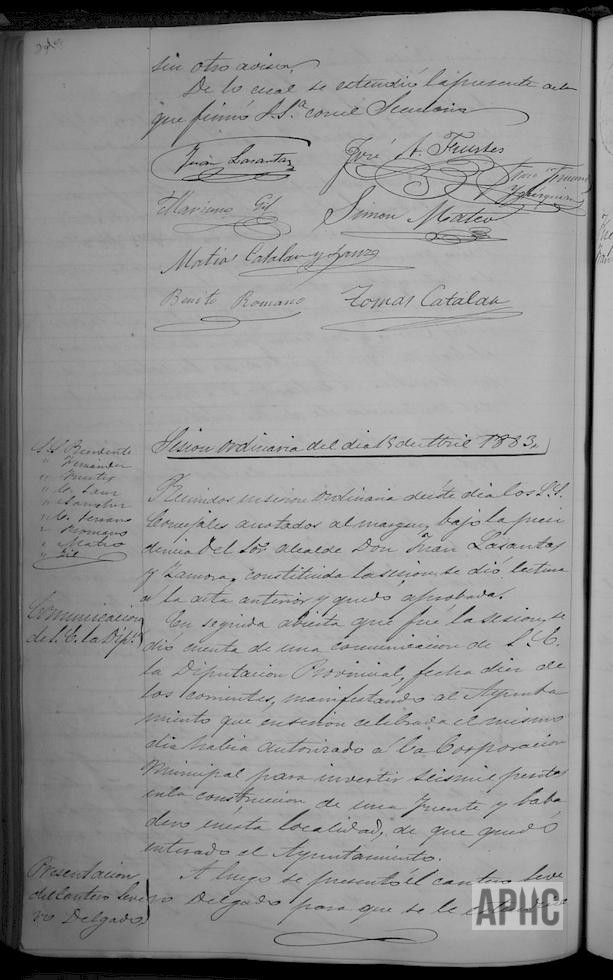 sin otro aviso.
De lo cual se estendió la presente acta
que firmó S.Sª con el Secretario
Juan Lasanta
José A. Frustes
Mariano Gil
Simon Mateo
Matias Catalan y Sanz
Benito Romano
Tomas Catalan
Sesion ordinaria del dia 15 de Abril 1883.
S.S. Presidente
" Fernandez
" C. Sanz
" Sanchez
" C. Serrano
" Romano
" Mateo
" Gil
Reunidos en sesion ordinaria de este dia los S.S.
Concejales anotados al margen, bajo la presi
dencia del Sor. alcalde Don Juan Lasanta
y Zamora, constituida la sesion, se dió lectura
a la acta anterior y quedo aprobada.
Comunicacion
de S.E. la Dipn.
En seguida abierta que fué la sesion, se
dió cuenta de una comunicacion de S.E.
la Diputacion Provincial, fecha diez de
los corrientes, manifestando al Ayunta
miento que en sesion celebrada el mismo
dia habia autorizado a la Corporacion
Municipal para invertir seis mil pesetas
en la construccion de una fuente y laba
dero en esta localidad, de que quedó
enterado el Ayuntamiento.
Presentacion
del cantero Seve
ro Delgado
A luego se presentó el cantero Seve
ro Delgado para que se le
APHC